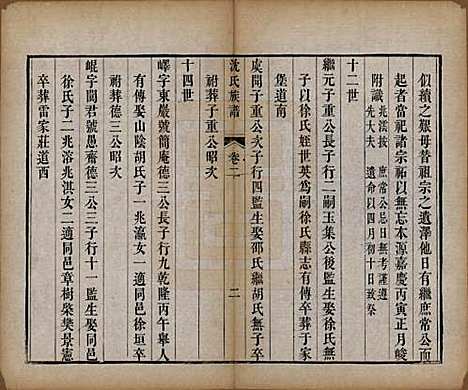 似續之艱毋替祖宗之遺澤他日有繼庶常公而
起者當祀諸宗祏以無忘本源嘉慶丙寅正月峻
附識 兆淇按 庶常公忌日無考謹遵
先大夫 遺命以四月初十日致祭
十二世
繼元子重公長子行二嗣玉集公後監生娶徐氏無
子以徐氏姪世英為嗣徐氏縣志有傳卒葬于家
堡道南
處閒子重公次子行四監生娶邵氏繼胡氏無子卒
祔葬子重公昭次
沈氏族譜 卷二 二
十四世
嶧字東巖號簡庵德三公長子行九乾隆丙午舉人
有傳娶山陰胡氏子一兆瀛女一適同邑徐垣卒
祔葬德三公昭次
崐字閬君號愚齋德三公三子行十一監生娶同邑
徐氏子二兆溶兆淇女二適同邑章樹棻樊景憲
卒葬雷家莊道西